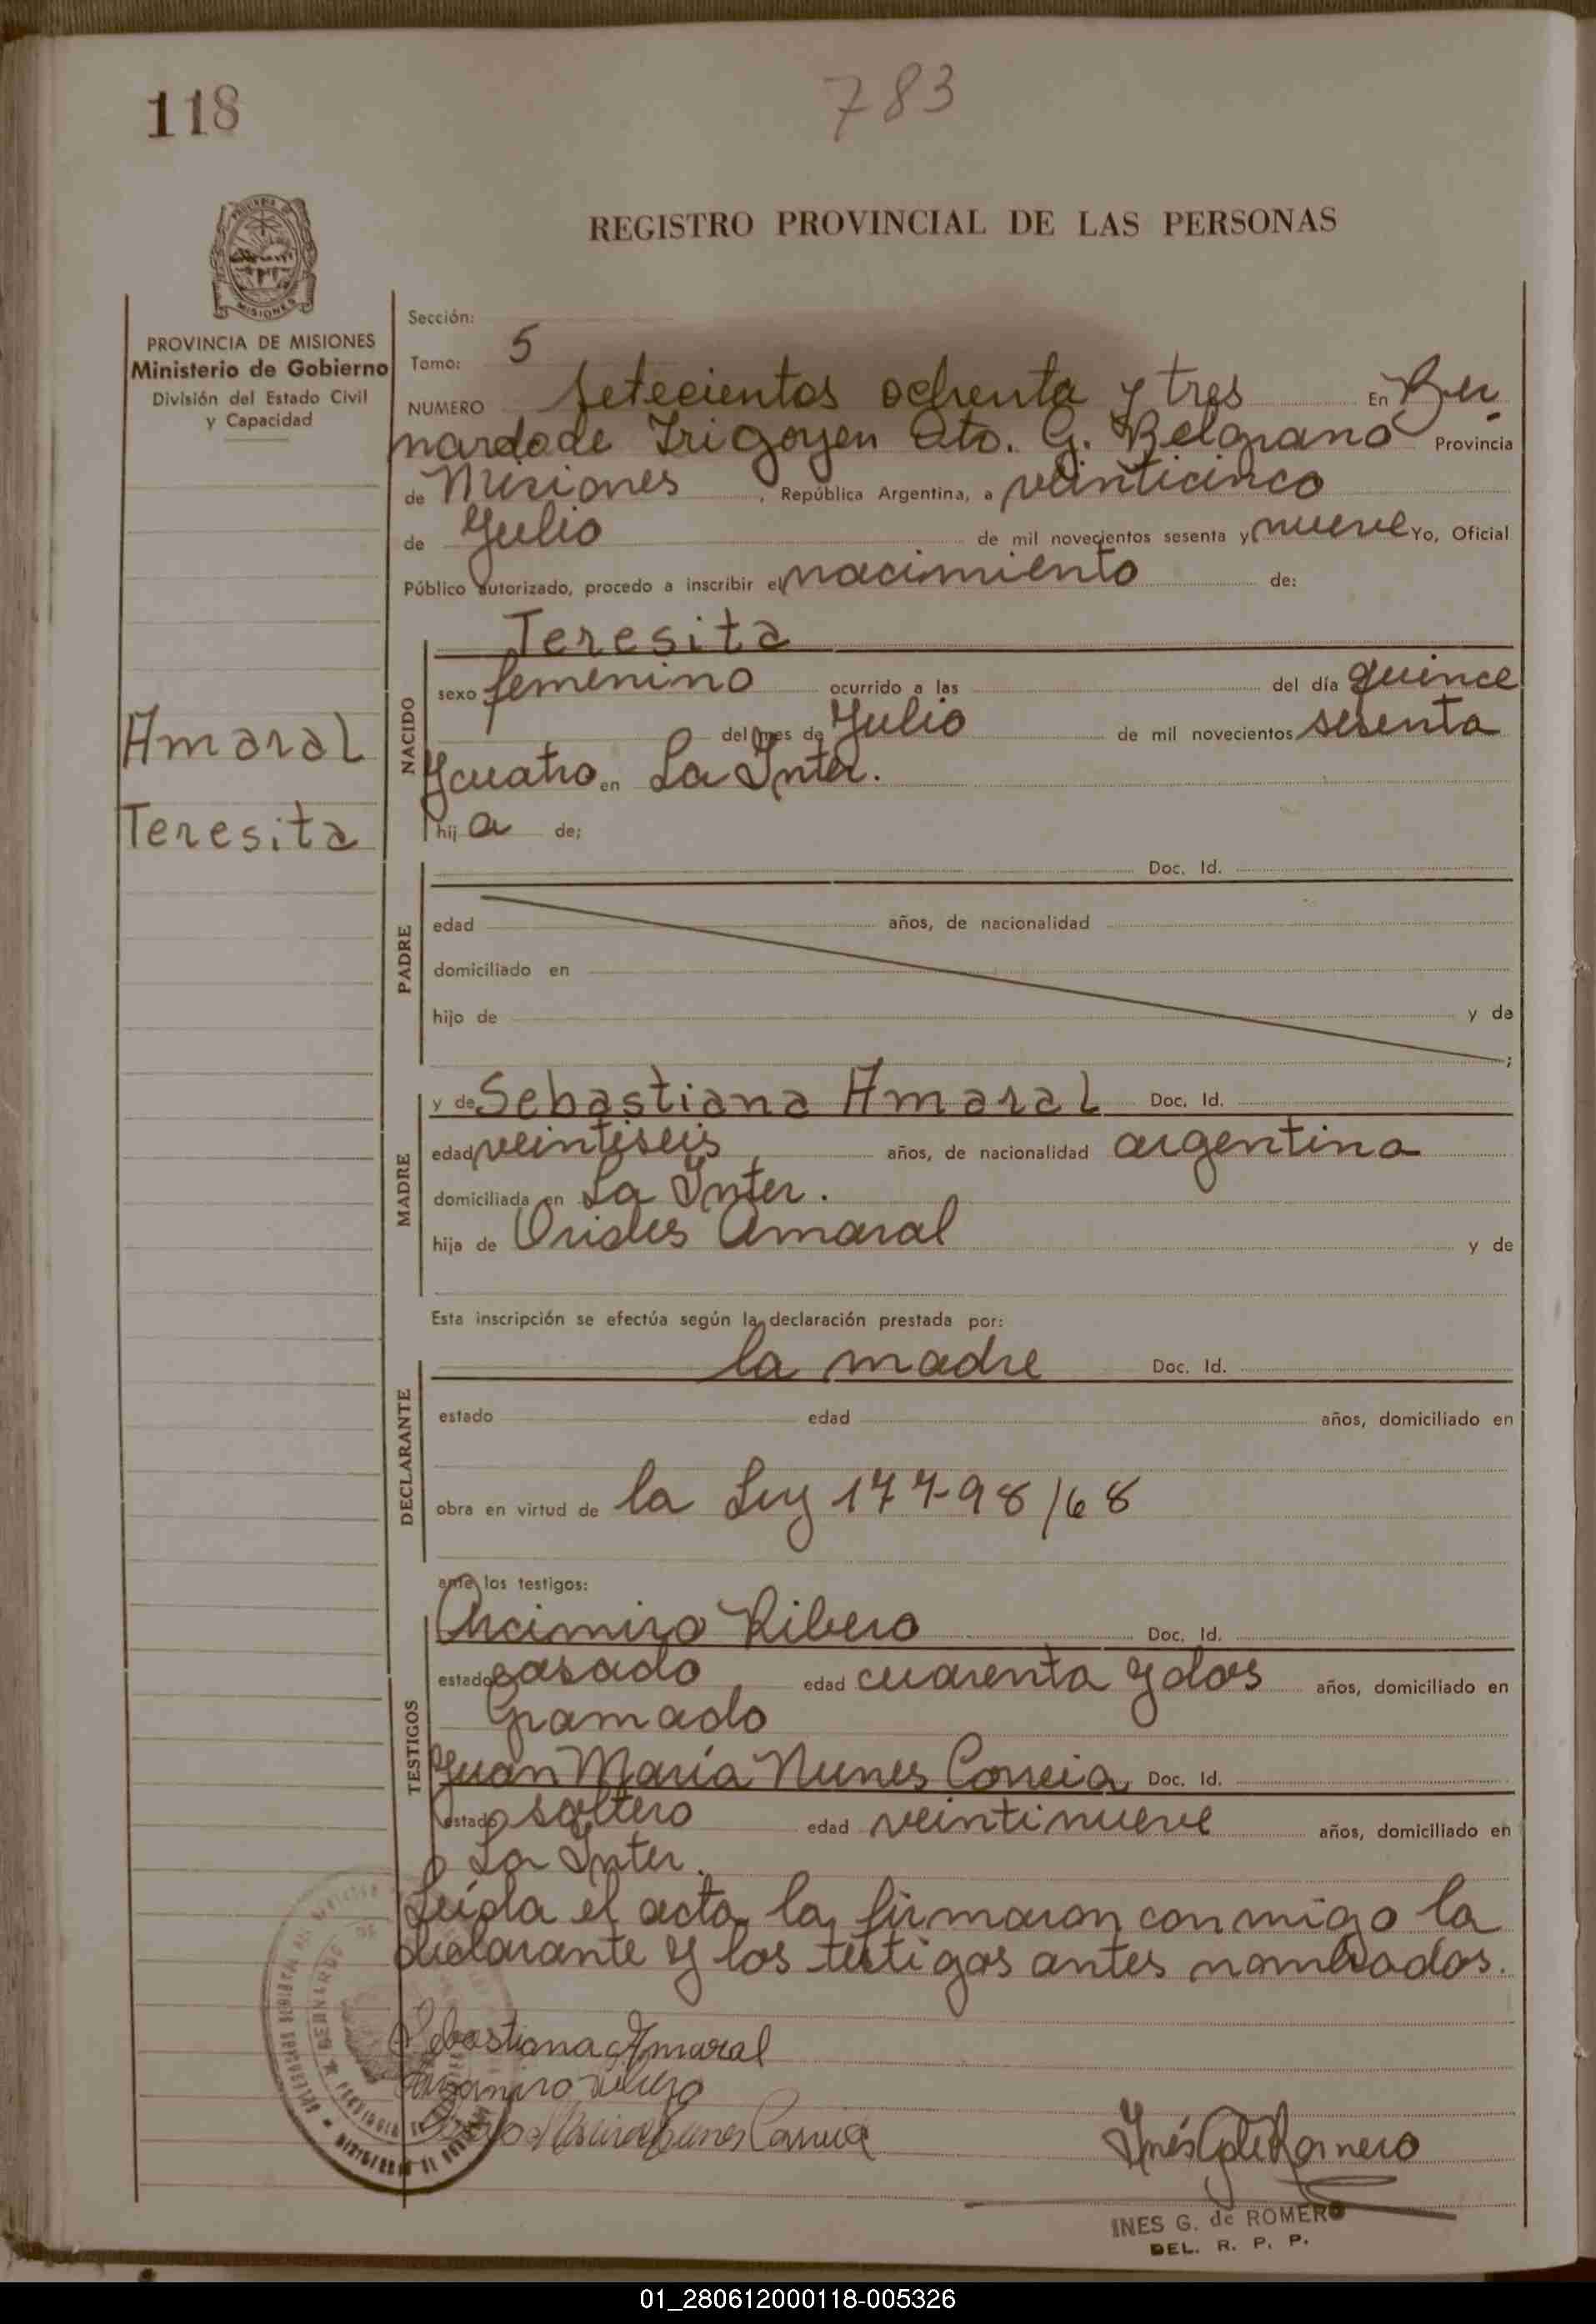 118
783
REGISTRO PROVINCIAL DE LAS PERSONAS
PROVINCIA DE MISIONES
Ministerio de Gobierno
División del Estado Civil
y Capacidad
Amaral
Teresita
Sección:
Tomo: 5
NUMERO Setecientos ochenta y tres En Ber
nardo de Irigoyen Dto. G. Belgrano Provincia
de Misiones, República Argentina, a veinticinco
de Julio de mil novecientos sesenta y nueve Yo, Oficial
Público autorizado, procedo a inscribir el nacimiento de:
NACIDO
Teresita
sexo femenino ocurrido a las del día quince
del mes de Julio de mil novecientos sesenta
y cuatro en La Inter.
hij a de;
PADRE
Doc. Id.
edad años, de nacionalidad
domiciliado en
hijo de y de
;
MADRE
y de Sebastiana Amaral Doc. Id.
edad veintiseis años, de nacionalidad argentina
domiciliada en La Inter.
hija de Orides Amaral y de
Esta inscripción se efectúa según la declaración prestada por:
DECLARANTE
la madre Doc. Id.
estado edad años, domiciliado en
obra en virtud de la Ley 177-98/68
ante los testigos:
TESTIGOS
Arcimiro Ribero Doc. Id.
estado casado edad cuarenta y dos años, domiciliado en
Gramado
Juan María Nunes Correia Doc. Id.
estado soltero edad veintinueve años, domiciliado en
La Inter.
Leída el acta la firmaron conmigo la
declarante y los testigos antes nombrados.
Sebastiana Amaral
Inés G de Romero
INES G. de ROMERO
DEL. R. P. P.
01_280612000118-005326